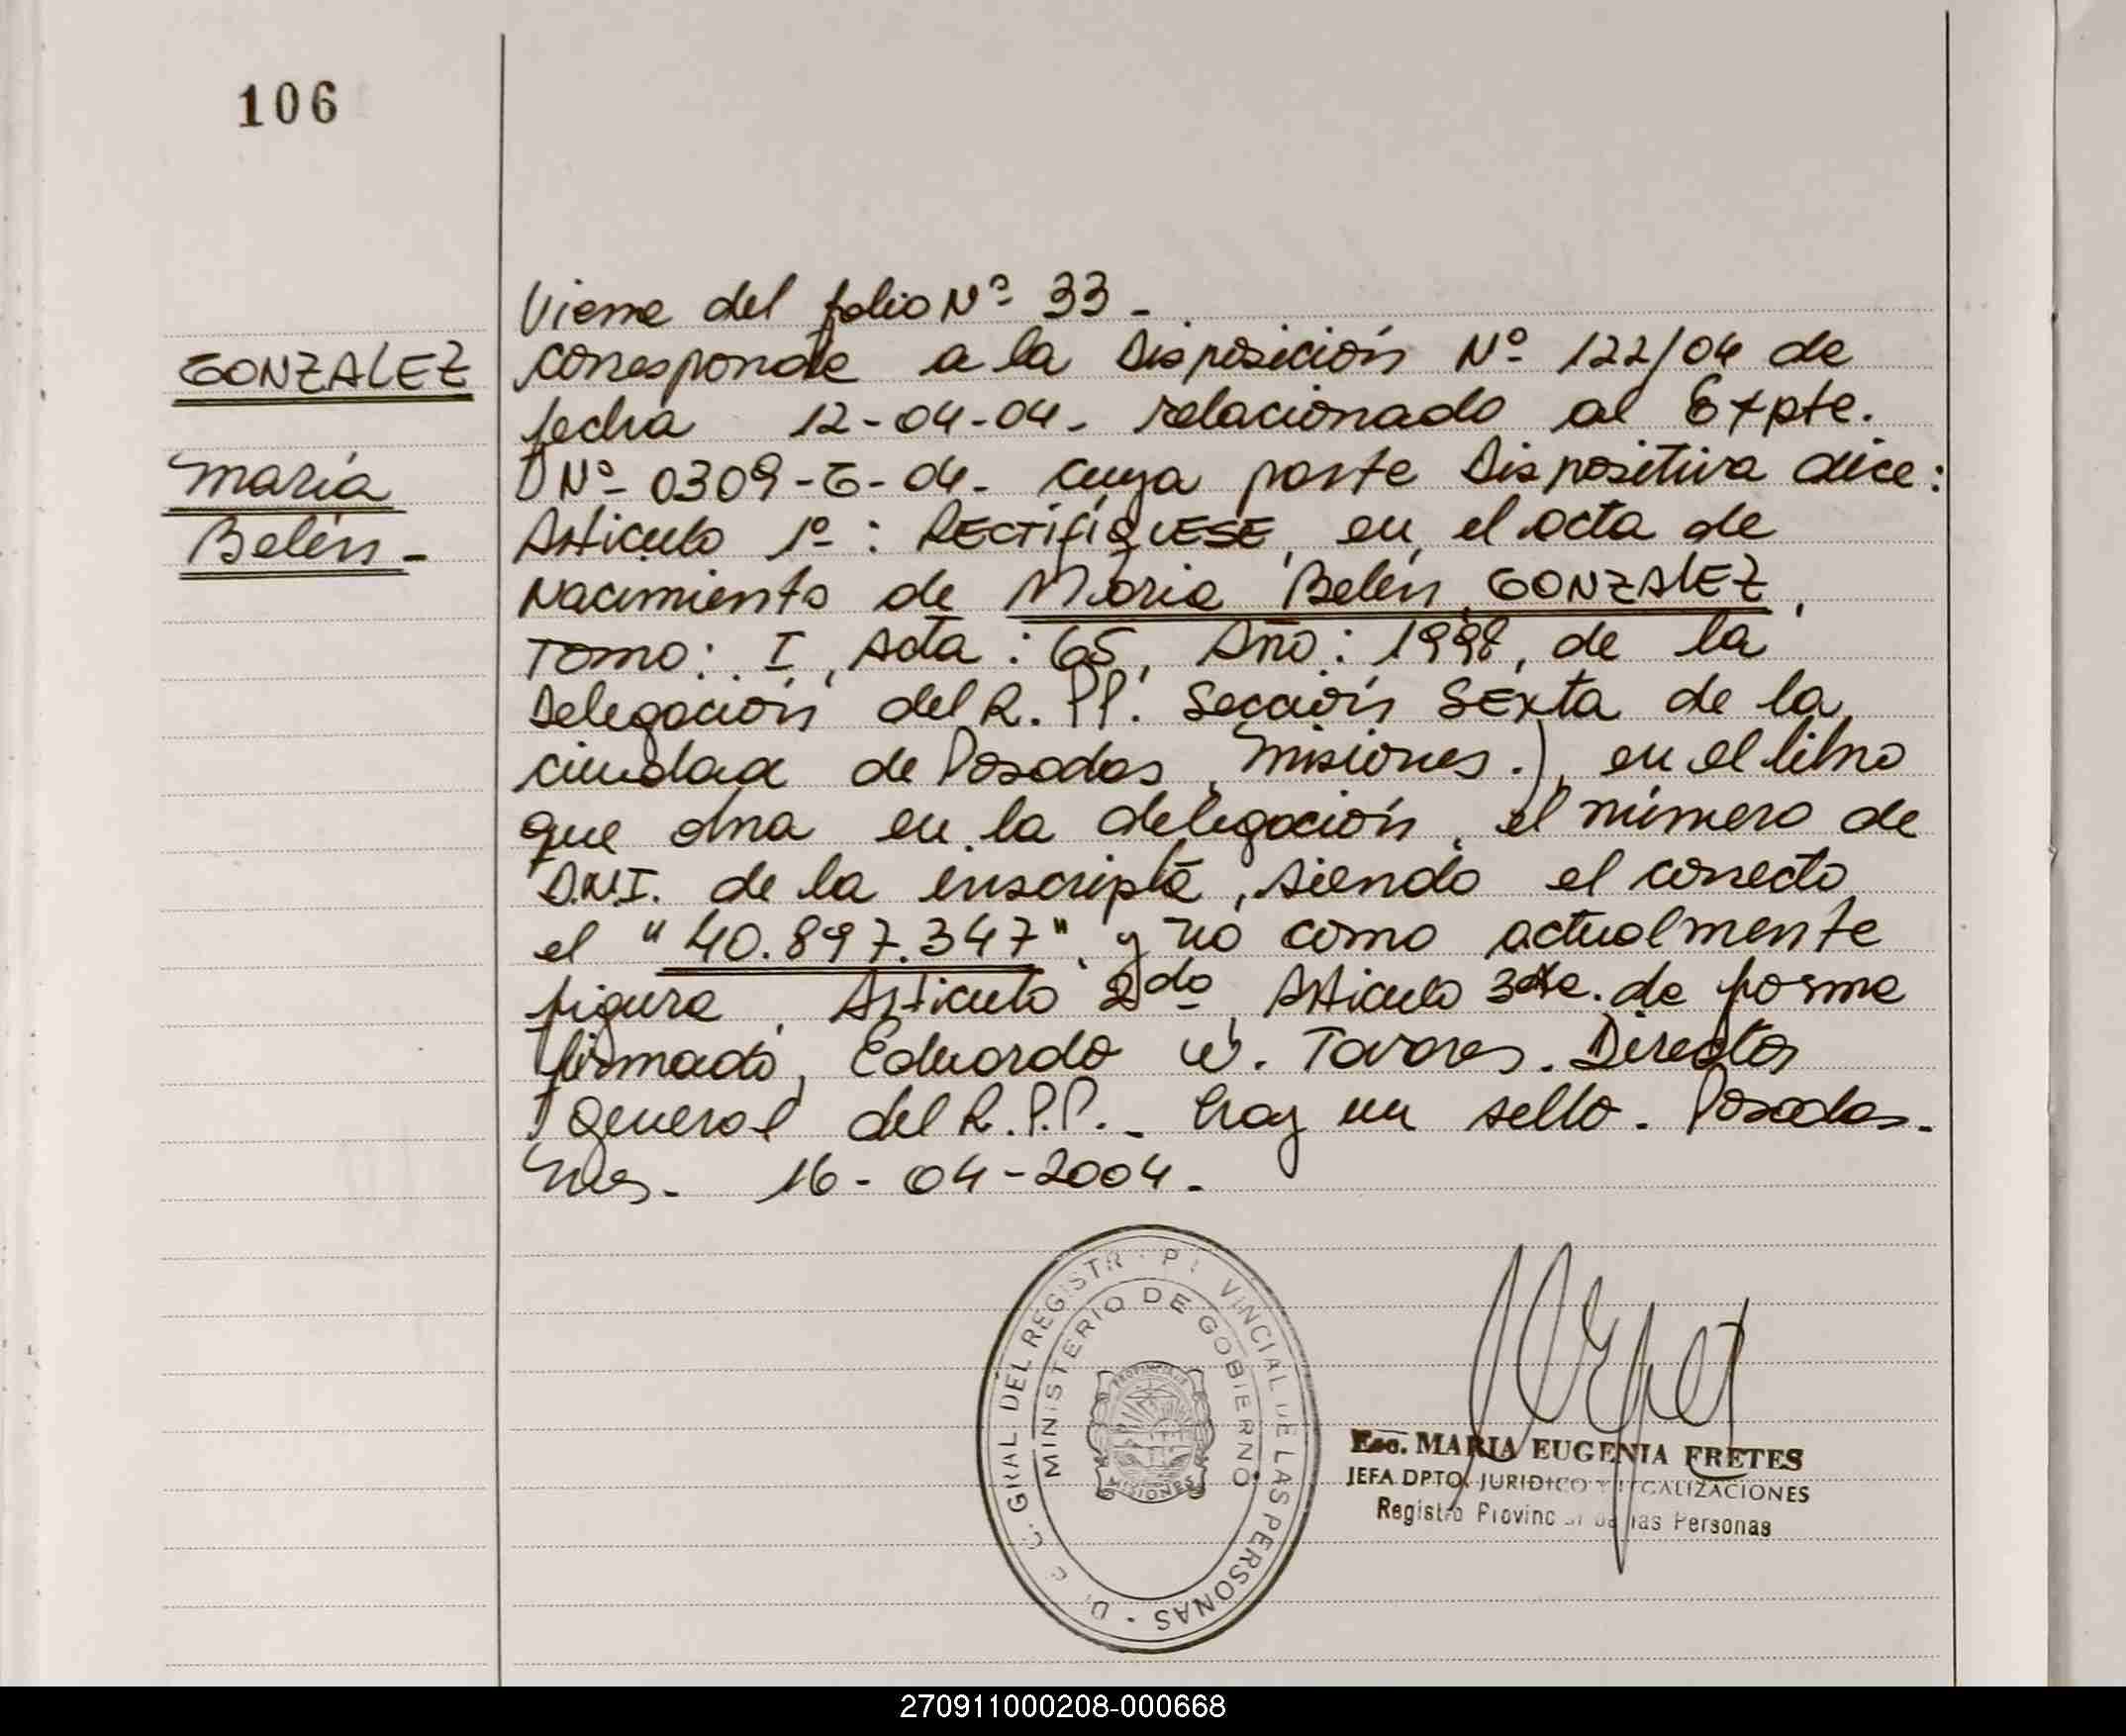 106
GONZALEZ
María
Belén -
Viene del folio Nº 33 -
corresponde a la Disposición Nº 122/04 de
fecha 12-04-04- relacionado al Expte.
Nº 0309-G-04- cuya parte Dispositiva dice:
Artículo 1º: RECTIFIQUESE, en el acta de
Nacimiento de María Belén GONZALEZ,
Tomo: I, Acta: 65, Año: 1998, de la
Delegación del R. PP. Sección Sexta de la
ciudad de Posadas, Misiones.), en el libro
que obra en la delegación, el número de
D.N.I. de la inscripta, siendo el correcto
el "40.897.347", y no como actualmente
figura. Artículo 2do, Artículo de forma
firmado, Eduardo W. Tavares. Director
General del R.P.P. - hay un sello. Posadas.
Mes. 16-04-2004.
GRAL DEL REGISTR PR VINCIAL DE LAS PERSONAS
MINISTERIO DE GOBIERNO
MISIONES
Esc. MARIA EUGENIA FRETES
JEFA DPTO. JURIDICO Y LEGALIZACIONES
Registro Provincial de las Personas
270911000208-000668